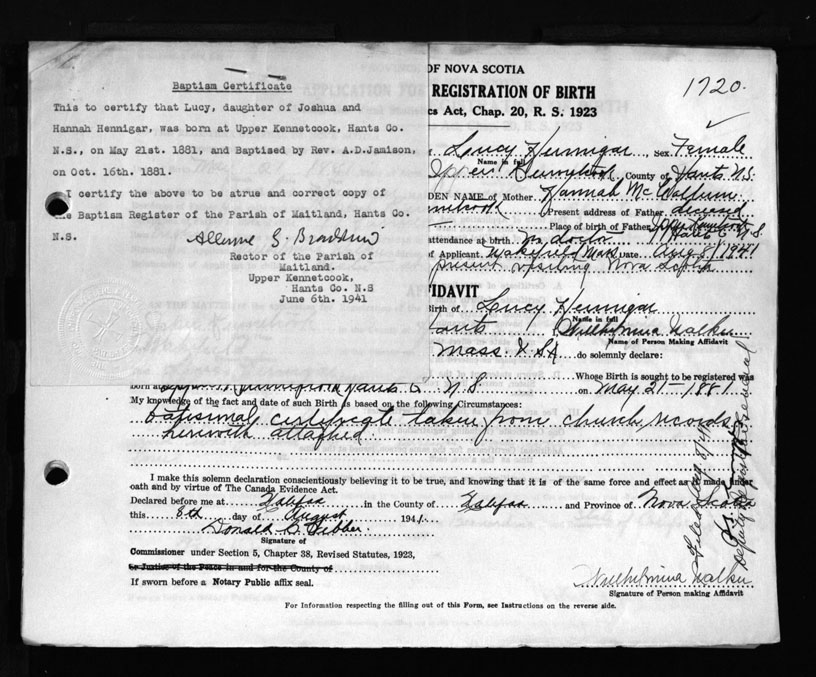 Baptism Certificate
This to certify that Lucy, daughter of Joshua and
Hannah Hennigar, was born at Upper Kennetcook, Hants Co.
N.S., on May 21st. 1881, and Baptised by Rev. A.D.Jamison,
on Oct. 16th. 1881.
I certify the above to be atrue and correct copy of
the Baptism Register of the Parish of Maitland, Hants Co.
N.S.
Rector of the Parish of
Maitland.
Upper Kennetcook,
Hants Co. N.S
June 6th. 1941
OF NOVA SCOTIA
REGISTRATION OF BIRTH
1720.
cs Act, Chap. 20, R. S. 1923
Lucy Hennigar Sex Female
Name in full
County of Hants N.S.
DEN NAME of Mother Hannah McCallum
Present address of Father
Place of birth of Father
attendance at birth No doctor
of Applicant Wakefield Mass Date Aug 8/1941
present visiting Nova Scotia
FIDAVIT
Birth of Lucy Hennigar
Name in full
Hants Wilhelmina Walker
Name of Person Making Affidavit
Mass U.S.A. do solemnly declare:
Whose Birth is sought to be registered was
born at Upper Kennetcook Hants Co N.S. on May 21-1881
My knowledge of the fact and date of such Birth is based on the following Circumstances:
Batisimal certificate taken from church records
herewith attached
I make this solemn declaration conscientiously believing it to be true, and knowing that it is of the same force and effect as if made under
oath and by virtue of The Canada Evidence Act.
Declared before me at Halifax in the County of Halifax and Province of Nova Scotia
this 8th day of August 1941.
Donald
Signature of
Commissioner under Section 5, Chapter 38, Revised Statutes, 1923,
or Justice of the Peace in and for the County of
If sworn before a Notary Public affix seal.
Wilhelmina Walker
Signature of Person making Affidavit
For Information respecting the filling out of this Form, see Instructions on the reverse side.
Filed Aug 8/41
Deputy Registrar General